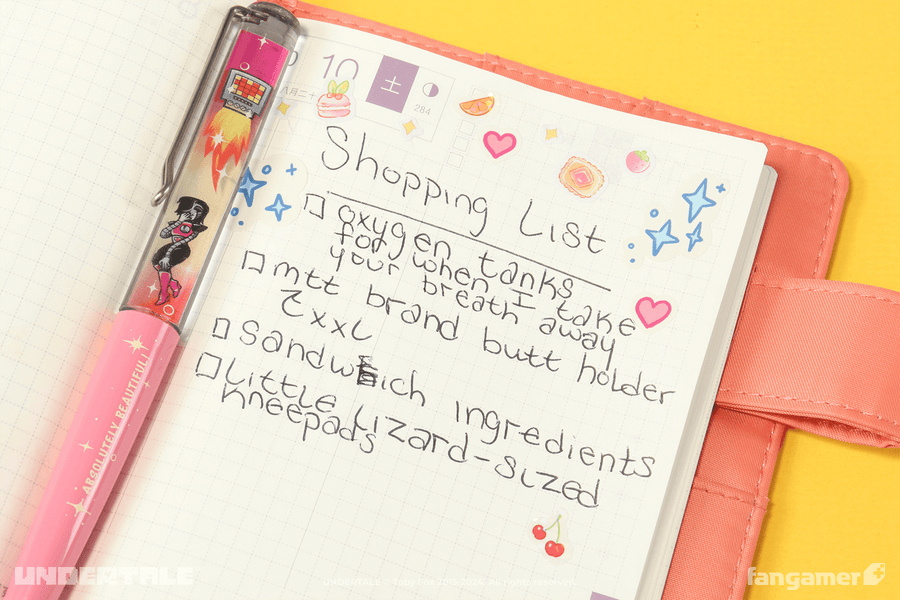 10
土
284
八月二十
Shopping List
oxygen tanks
for when I take
your breath away
mtt brand butt holder
2xxL
Sandwich ingredients
Little Lizard-sized
kneepads
ABSOLUTELY BEAUTIFUL!
UNDERTALE
UNDERTALE © Toby Fox 2015-2024. All rights reserved.
fangamer